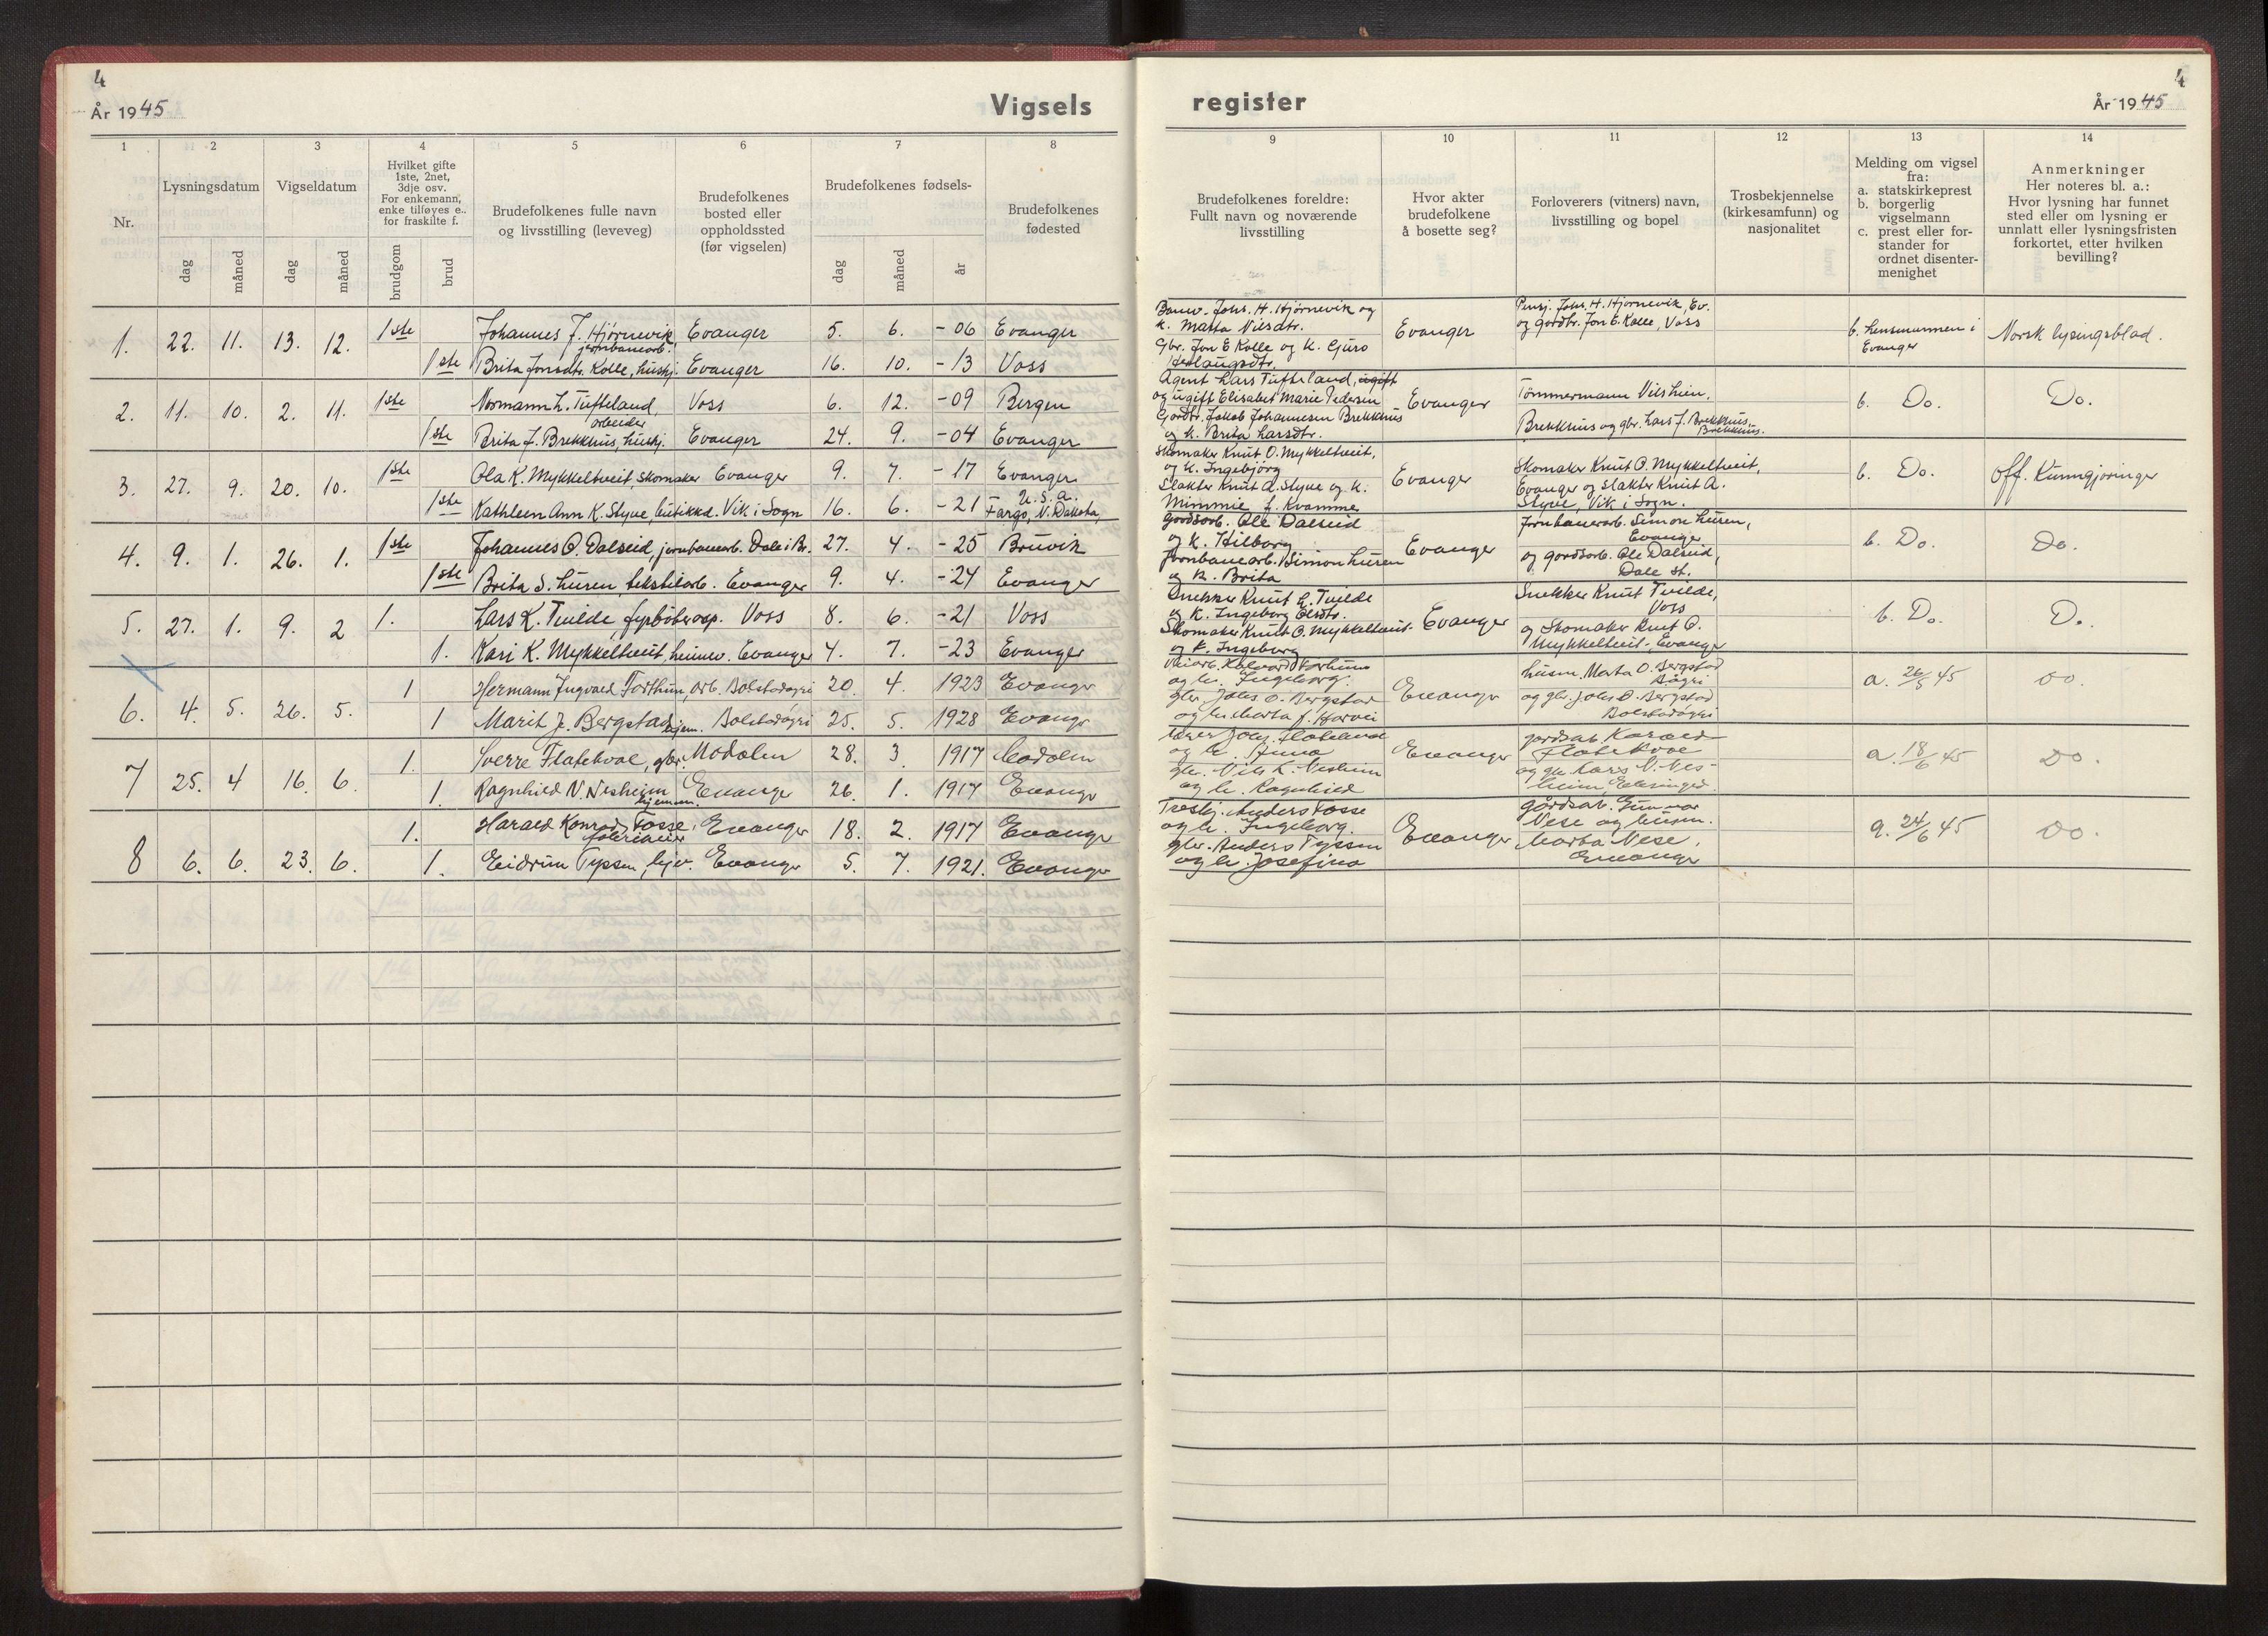 4
År 1945
Vigsels
1
2
3
4
5
6
7
8
Nr.
Lysningsdatum
Vigseldatum
Hvilket gifte
1ste, 2net,
3dje osv.
For enkemann,
enke tilføyes e..
for fraskilte f.
Brudefolkenes fulle navn
og livsstilling (leveveg)
Brudefolkenes
bosted eller
oppholdssted
(før vigselen)
Brudefolkenes fødsels-
Brudefolkenes
fødested
dag
måned
dag
måned
brudgom
brud
dag
måned
år
1. 22. 11. 13. 12. 1ste Johannes J. Hjørnevik, Evanger 5. 6. -06 Evanger
jernbanearb.
1ste Brita Jonsdtr. Kolle, hushj. Evanger 16. 10. -13 Voss
2. 11. 10. 2. 11. 1ste Normann L. Tufteland, Voss 6. 12. -09 Bergen
arbeider
1ste Brita J. Brekkhus, hushj. Evanger 24. 9. -04 Evanger
3. 27. 9. 20. 10. 1ste Ola K. Mykkeltveit, skomaker Evanger 9. 7. -17 Evanger
1ste Kathleen Ann K. Styve, butikkd. Vik i Sogn 16. 6. -21 U.S.A.
Fargo, N. Dakota,
4. 9. 1. 26. 1. 1ste Johannes O. Dalseid, jernbanearb. Dale i Br. 27. 4. -25 Bruvik
1ste Brita S. Húsen, tekstilarb. Evanger 9. 4. -24 Evanger
5. 27. 1. 9. 2 1. Lars K. Tvilde, fyrbøterasp. Voss 8. 6. -21 Voss
1. Kari K. Mykkeltveit, heimev. Evanger 4. 7. -23 Evanger
6. 4. 5. 26. 5. 1 Hermann Ingvald Forthun, arb. Bolstadøyri 20. 4. 1923 Evanger
1 Marit J. Bergstad, hjem. Bolstadøyri 25. 5. 1928 Evanger
7 25. 4 16. 6. 1. Sverre Flatekvoe, gbr. Modalen 28. 3. 1917 Modalen
1. Ragnhild N. Nesheim Evanger 26. 1. 1917 Evanger
hjemmev.
8 6. 6. 23. 6. 1. Harald Konrad Fosse, Evanger 18. 2. 1917 Evanger
1. Eidrun Tyssen, hjv. Evanger 5. 7. 1921. Evanger
register
4
År 1945
9
10
11
12
13
14
Brudefolkenes foreldre:
Fullt navn og noværende
livsstilling
Hvor akter
brudefolkene
å bosette seg?
Forloverers (vitners) navn,
livsstilling og bopel
Trosbekjennelse
(kirkesamfunn) og
nasjonalitet
Melding om vigsel
fra:
a. statskirkeprest
b. borgerlig
vigselmann
c. prest eller for-
stander for
ordnet disenter-
menighet
Anmerkninger
Her noteres bl. a.:
Hvor lysning har funnet
sted eller om lysning er
unnlatt eller lysningsfristen
forkortet, etter hvilken
bevilling?
Johs. H. Hjørnevik og
k. Marta Nilsdtr.
Gbr. Jon E Kolle og k. Guro
Herlaugsdtr.
Evanger
Pensj. Johs. H. Hjørnevik, Ev.
og gardbr. Jon E. Kolle, Voss
b. Lensmannen i
Evanger
Norsk lysingsblad.
Agent Lars Tufteland, ugift
og ugift Elisabet Marie Pedersen
Gardbr. Jakob Johannesen Brekkhus
og k. Brita Larsdtr.
Evanger
Tømmermann Nils Hein,
Brekkhus og gbr. Lars J. Brekkhus,
Brekkhus.
b. Do.
Do.
Skomaker Knut O. Mykkeltveit,
og k. Ingebjørg
Slakter Knut A. Styve og k.
Mimmie f. Kvamme
Evanger
Skomaker Knut O. Mykkeltveit,
Evanger og slakter Knut A.
Styve, Vik i Sogn.
b. Do.
Off. Kunngjøringer
Gardsarb. Ole Dalseid
og k. Hilborg
Jernbanearb. Simon Húsen
og k. Brita
Evanger
Jernbanearb. Simon Húsen,
Evanger
og gardsarb. Ole Dalseid,
Dale st.
b. Do.
Do.
Snekker Knut L. Tvilde
og k. Ingeborg Elsdtr.
Skomaker Knut O. Mykkeltveit.
og k. Ingeborg
Evanger
Snekker Knut Tvilde,
Voss
og Skomaker Knut O.
Mykkeltveit, Evanger
b. Do.
D.
Veiarb. Halvard Forthun
og hu. Ingeborg.
gbr. Johs O. Bergstad
og hu. Marta f. Horvei
Evanger
husm. Marta O. Bergstad
og gbr. Johs O. Bergstad
Bolstadøyri
a. 26/5 45
Do.
og hu. Anna
gbr. Nils L. Nesheim
og hu. Ragnhild
Evanger
gardsarb. Harald
Flatekvoe
og gbr. Lars N. Nes-
heim,
a. 18/6 45
Do.
Anders Fosse
og hu. Ingeborg.
gbr. Anders Tyssen
og hu. Josefina
Evanger
gårdsarb. Gunnar
Nese og husm.
Marta Nese,
Evanger
a. 24/6 45
Do.